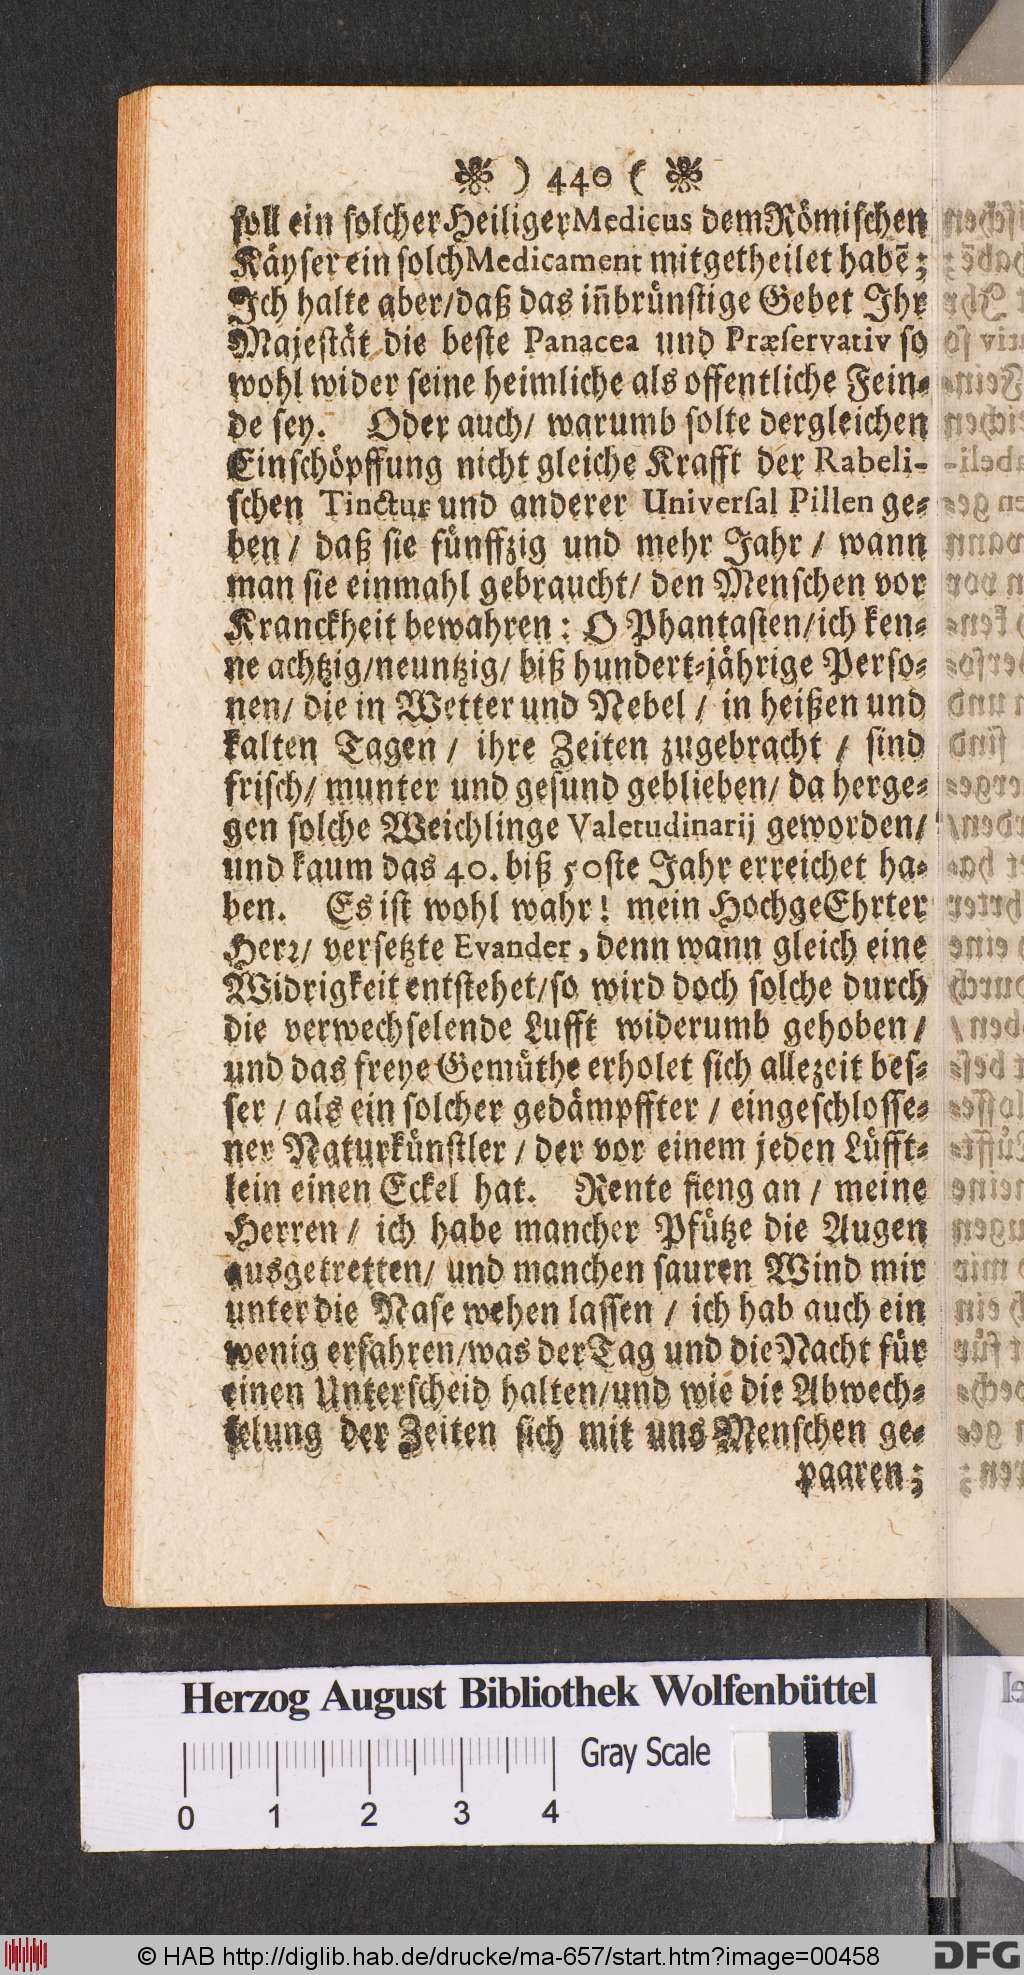 ) 440 (
soll ein solcher Heiliger Medicus dem Römischen
Käyser ein solch Medicament mitgetheilet habẽ;
Ich halte aber/daß das iñbrünstige Gebet Ihr
Majestät die beste Panacea und Præservativ so
wohl wider seine heimliche als offentliche Fein-
de sey. Oder auch/ warumb solte dergleichen
Einschöpffung nicht gleiche Krafft der Rabeli-
schen Tinctur und anderer Universal Pillen ge-
ben / daß sie fünffzig und mehr Jahr / wann
man sie einmahl gebraucht/ den Menschen vor
Kranckheit bewahren: O Phantasten/ich ken-
ne achtzig/neuntzig/ biß hundert-jährige Perso-
nen/ die in Wetter und Nebel / in heißen und
kalten Tagen / ihre Zeiten zugebracht / sind
frisch/ munter und gesund geblieben/ da herge-
gen solche Weichlinge Valetudinarij geworden/
und kaum das 40. biß 50ste Jahr erreichet ha-
ben. Es ist wohl wahr! mein HochgeEhrter
Herꝛ/ versetzte Evander, denn wann gleich eine
Widrigkeit entstehet/so wird doch solche durch
die verwechselende Lufft widerumb gehoben /
und das freye Gemüthe erholet sich allezeit bes-
ser / als ein solcher gedämpffter / eingeschlosse-
ner Naturkünstler / der vor einem jeden Lüfft-
lein einen Eckel hat. Rente fieng an / meine
Herren / ich habe mancher Pfütze die Augen
ausgetretten/ und manchen sauren Wind mir
unter die Nase wehen lassen / ich hab auch ein
wenig erfahren/was der Tag und die Nacht für
einen Unterscheid halten/und wie die Abwech-
selung der Zeiten sich mit uns Menschen ge-
paaren;
Herzog August Bibliothek Wolfenbüttel
Gray Scale
0 1 2 3 4
© HAB http://diglib.hab.de/drucke/ma-657/start.htm?image=00458
DFG